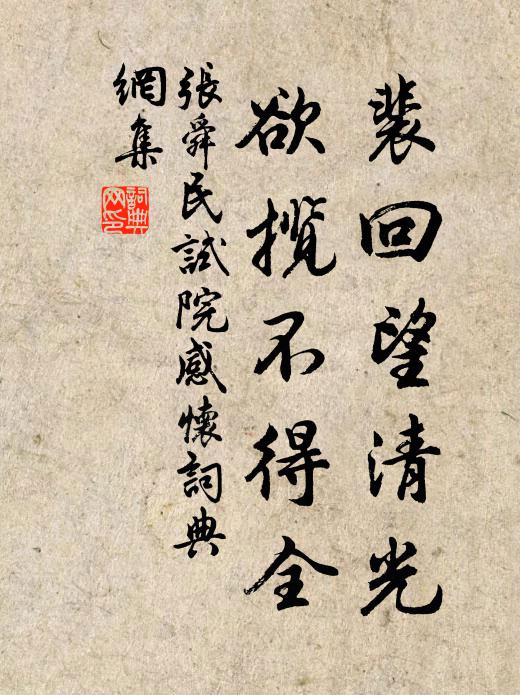 裴回望清光
欲攬不得全
張舜民試院感懷詞典
網集
詞典
網印